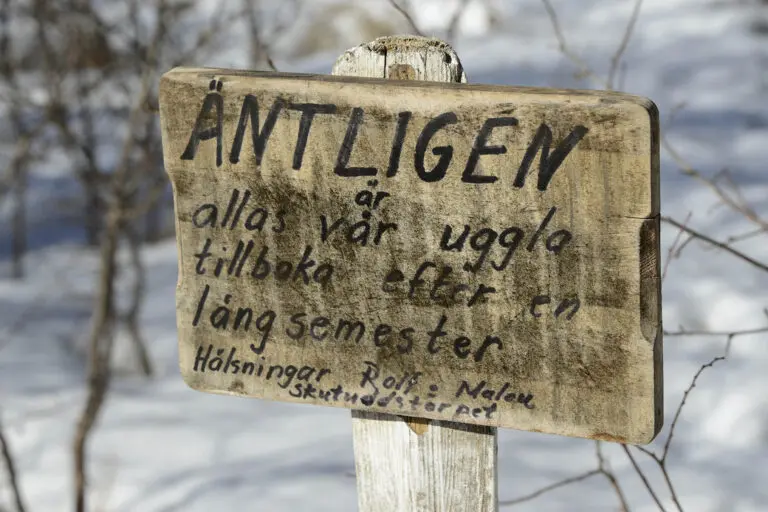 ÄNTLIGEN
är
allas vår uggla
tillboka efter en
lång semester
Hälsningar Rolf: Malou
Skutuddstorpet